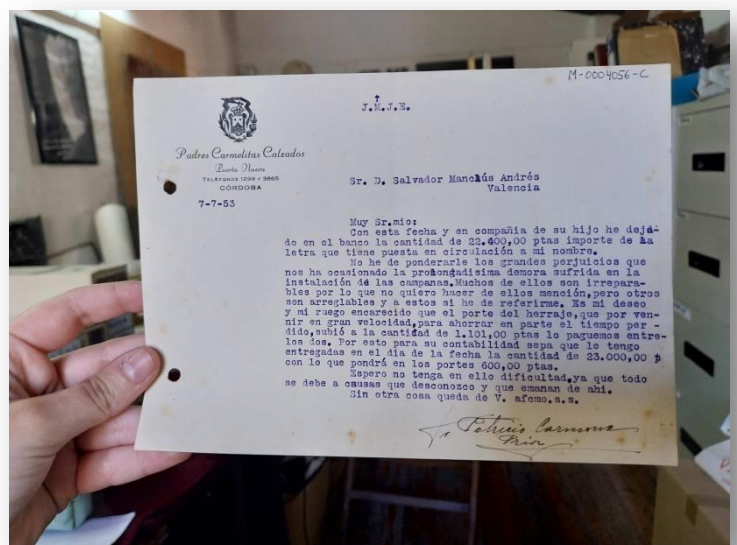 M-0004056-C
J.M.J.E.
Padres Carmelitas Calzados
Puerta Nueva
TELÉFONOS 1299 y 3665
CÓRDOBA
7-7-53
Sr. D. Salvador Manclús Andrés
Valencia
Muy Sr.mio:
Con esta fecha y en compañia de su hijo he deja-
do en el banco la cantidad de 22.400,00 ptas importe de la
letra que tiene puesta en circulación a mi nombre.
No he de ponderarle los grandes perjuicios que
nos ha ocasionado la prolongadisima demora sufrida en la
instalación de las campanas.Muchos de ellos son irrepara-
bles por lo que no quiero hacer de ellos mención,pero otros
son arreglables y a estos si he de referirme. Es mi deseo
y mi ruego encarecido que el porte del herraje,que por ven-
nir en gran velocidad,para ahorrar en parte el tiempo per -
dido,subió a la cantidad de 1.101,00 ptas lo paguemos entre-
los dos. Por esto para su contabilidad sepa que le tengo
entregadas en el dia de la fecha la cantidad de 23.000,00 p
con lo que pondrá en los portes 600,00 ptas.
Espero no tenga en ello dificultad,ya que todo
se debe a causas que desconozco y que emanan de ahi.
Sin otra cosa queda de V. afcmo.s.s.
Fr Patricio Carmona
Prior